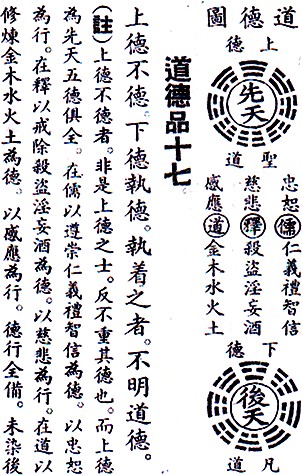 道德圖
上德
先天
聖道
忠恕儒仁義禮智信
慈悲釋殺盜淫妄酒
感應道金木水火土
下德
後天
凡道
道德品十七
上德不德。下德執德。執着之者。不明道德。
(註)上德不德者。非是上德之士。反不重其德也。而上德
為先天五德俱全。在儒以遵崇仁義禮智信為德。以忠恕
為行。在釋以戒除殺盜淫妄酒為德。以慈悲為行。在道以
修煉金木水火土為德。以感應為行。德行全備。未染後